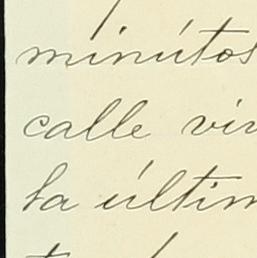 minútos
calle vi
la últim